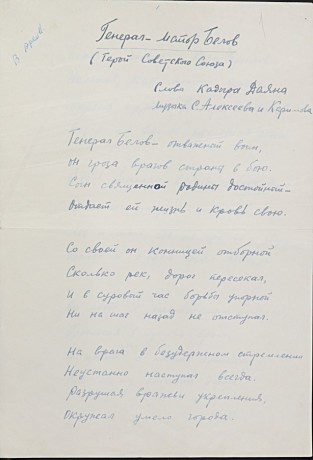 В архив
Генерал-майор Белов
(Герой Советского Союза)
Слова Кадыра Даяна
музыка С. Алексеева и Керимова
Генерал Белов – отважный воин,
он гроза врагов страна в бою.
Сын священной родины достойный –
Отдает ей жизнь и кровь свою.
Со своей он конницей отборной
Сколько рек, дорог пересекал,
И в суровый час борьбы упорной
Ни на шаг назад не отступал.
На врага в безудержном стремлении
Неустанно наступая всегда.
Разрушая вражьи укрепления,
Окружал умело города.